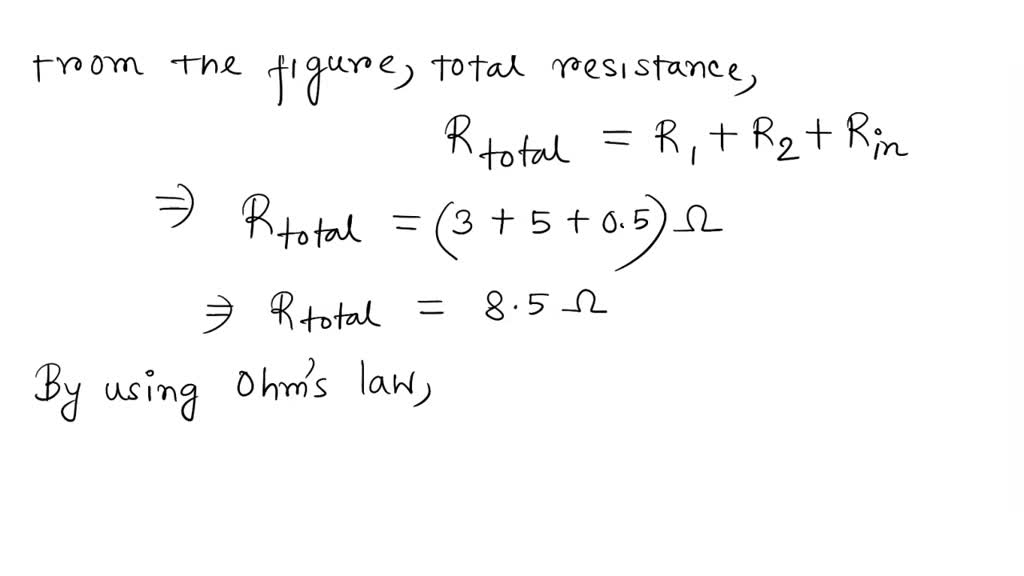 from the figure, total resistance,
R_total = R_1 + R_2 + R_in
⇒ R_total = (3 + 5 + 0.5) Ω
⇒ R_total = 8.5 Ω
By using Ohm's law,